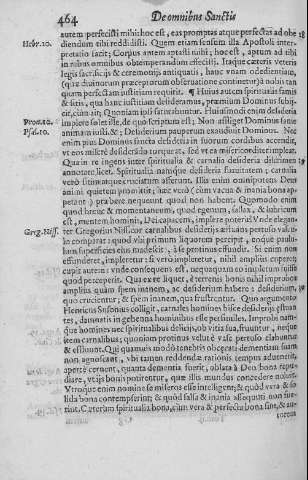 464 De omnibus Sanctis
autem perfecisti mihi: hoc est, eas promptas atque perfectas ad obe
Hebr. 10. diendum tibi reddidisti. Quem etiam sensum illa Apostoli inter-
pretatio facit; Corpus autem aptasti mihi; hoc est, aptum ad tibi
in rebus omnibus obtemperandum effecisti. Itaque cæteris veteris
legis sacrificijs & ceremonijs antiquatis, hanc unam obedientiam,
(quæ divinorum præceptorum observatione continetur) nobis tan
quam perfectam iustitiam requirit. ¶ Huius autem spiritualis famis
& sitis, qua hanc iustitiam desideramus, præmium Dominus subij-
cit, cùm ait; Quoniam ipsi saturabuntur. Huiusmodi enim desideria
Prou. 10. implere solet ille, de quo scriptum est; Non affliget Dominus fame
Psal. 10. animam iusti. &; Desiderium pauperum exaudiuit Dominus. Nec
enim pius Dominus sancta desideria in suorum cordibus accendit,
vt eos miserè desiderijs torqueat, sed vt ea misericorditer impleat.
Qua in re ingens inter spiritualia & carnalia desideria discrimen
annotare licet. Spiritualia namque desideria
verò sitim atque cruciatum afferunt. Illa enim omnipotens Deus
animi quietem promittit; hæc verò (cùm vacua & inania bona ap-
petant) præbere nequeunt quod non habent. Quomodo enim
quod breve & momentaneum, quod egenum, fallax, & lubricum
est, mentem Dei capacem, implere poterit? Unde elegan-
Greg. Niss. ter Gregorius Nissenus carnalibus desiderijs
lo comparat: quod vbi primum liquorem percepit,
lum superficies eius madescit, à se protinus effundit. Si enim non
effunderet, impleretur; & verò impleretur, nihil amplius
cupit autem: vnde consequens est, nequaquam eo impletum fuisse
quod perceperit. Qua ex re liquet, è terrenis bonis nihil improbos
amplius quàm spem inanem, ac desiderium habere: desiderium,
quo crucientur; & spem inanem, qua frustrentur. Quo argumento
Henricus Susonius colligit, carnales homines hisce desiderijs
tes, damnatis in gehenna hominibus esse persimiles. Improbi nam-
que homines nec spiritualibus delicijs, ob vitia sua, fruuntur, neque
item carnalibus; quoniam protinus velut è vase pertuso elabuntur
& effluunt. Qui quamuis modò tenebris obcæcati dementiam suam
non agnoscant, vbi tamen reddendæ rationis tempus advenerit,
apertè cernent, quanta dementia fuerit, oblata à Deo bona repu-
diare, vt ijs bonis potirentur, quæ illis mundus concedere
Vtroque enim nomine se miseros esse intelligent; & quòd vera & so-
lida bona contempserint; & quòd falsa & inania assequuti non fue-
rint. Cæterùm spiritualia bona, cùm vera & perfecta bona sint, & au-